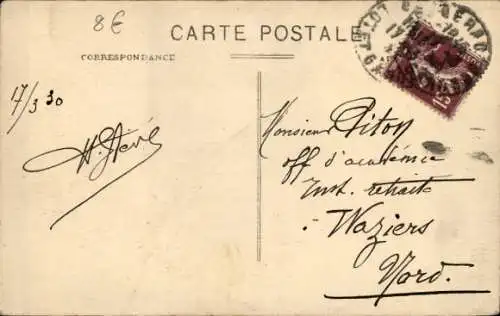 8€
CARTE POSTALE
CORRESPONDANCE
BERGERAC
LOT ET G
15
17/3 30
H. Stévé
Monsieur Piton
off d'académie
Inst. retraité
à Waziers
Nord.